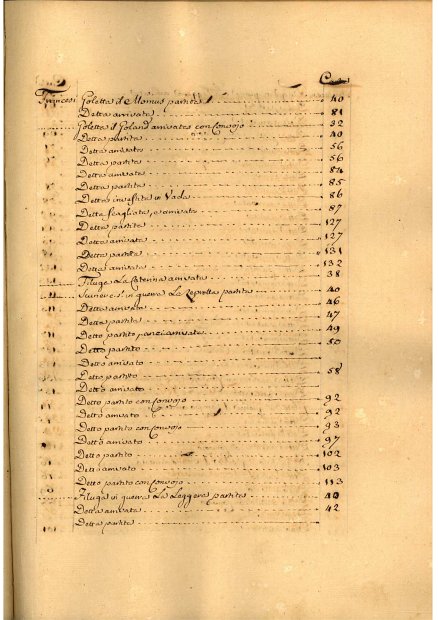 T Carte
Francesi Goletta d'Momus partita 40
Detta arrivata 81
Goletta d'Goland arrivata con Convojo 32
Detta partita 40
Detta arrivata 56
Detta partita 56
Detta arrivata 84
Detta partita 85
Detta in Vada 86
Detta e arrivata 87
Detta partita 127
Detta arrivata 127
Detta partita 131
Detta arrivata 132
Filuga La Caterina arrivata 38
in guerra La partita 40
Detta arrivata 46
Detta partita 47
Detto partito 49
Detto partito 50
Detto arrivato
Detto partito 58
Detto arrivato
Detto partito con Convojo 92
Detto arrivato 92
Detto partito con Convojo 93
Detto arrivato 97
Detto partito 102
Detto arrivato 103
Detto partito con Convojo 113
Filuga in guerra La Leggera partita 40
Detta arrivata 42
Detta partita